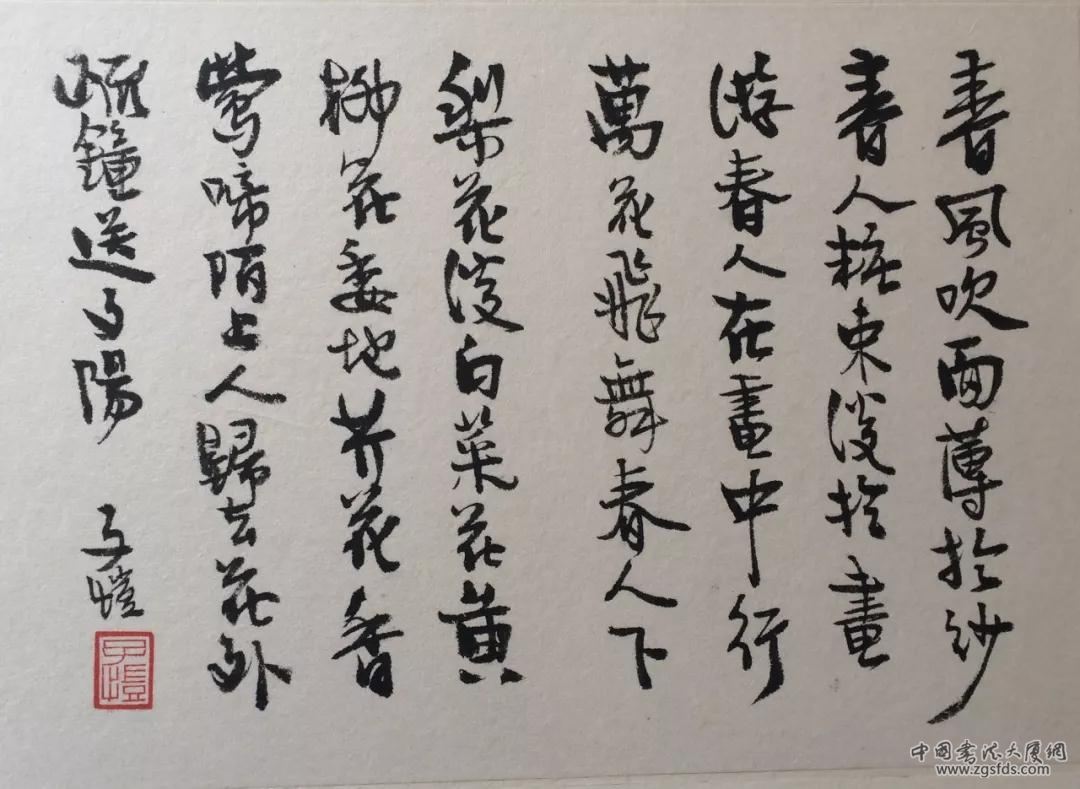 春風吹面薄於紗
春人粧束淡於畫
游春人在畫中行
萬花飛舞春人下
梨花淡白菜花黄
柳花委地芥花香
鶯啼陌上人歸去花外
疏鐘送夕陽 子愷
子愷
中国书法大厦網
www.zgsfds.com